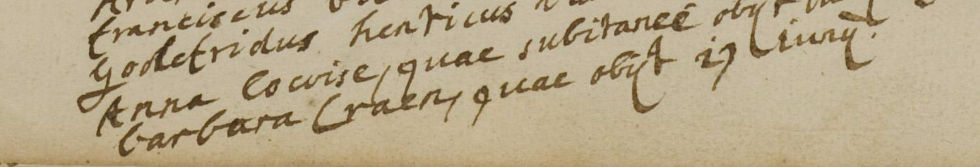 franciscus
Godefridus henricus
Anna Lowise, quae subitanee obijt
barbara Craen, quae obijt 17 iunij.